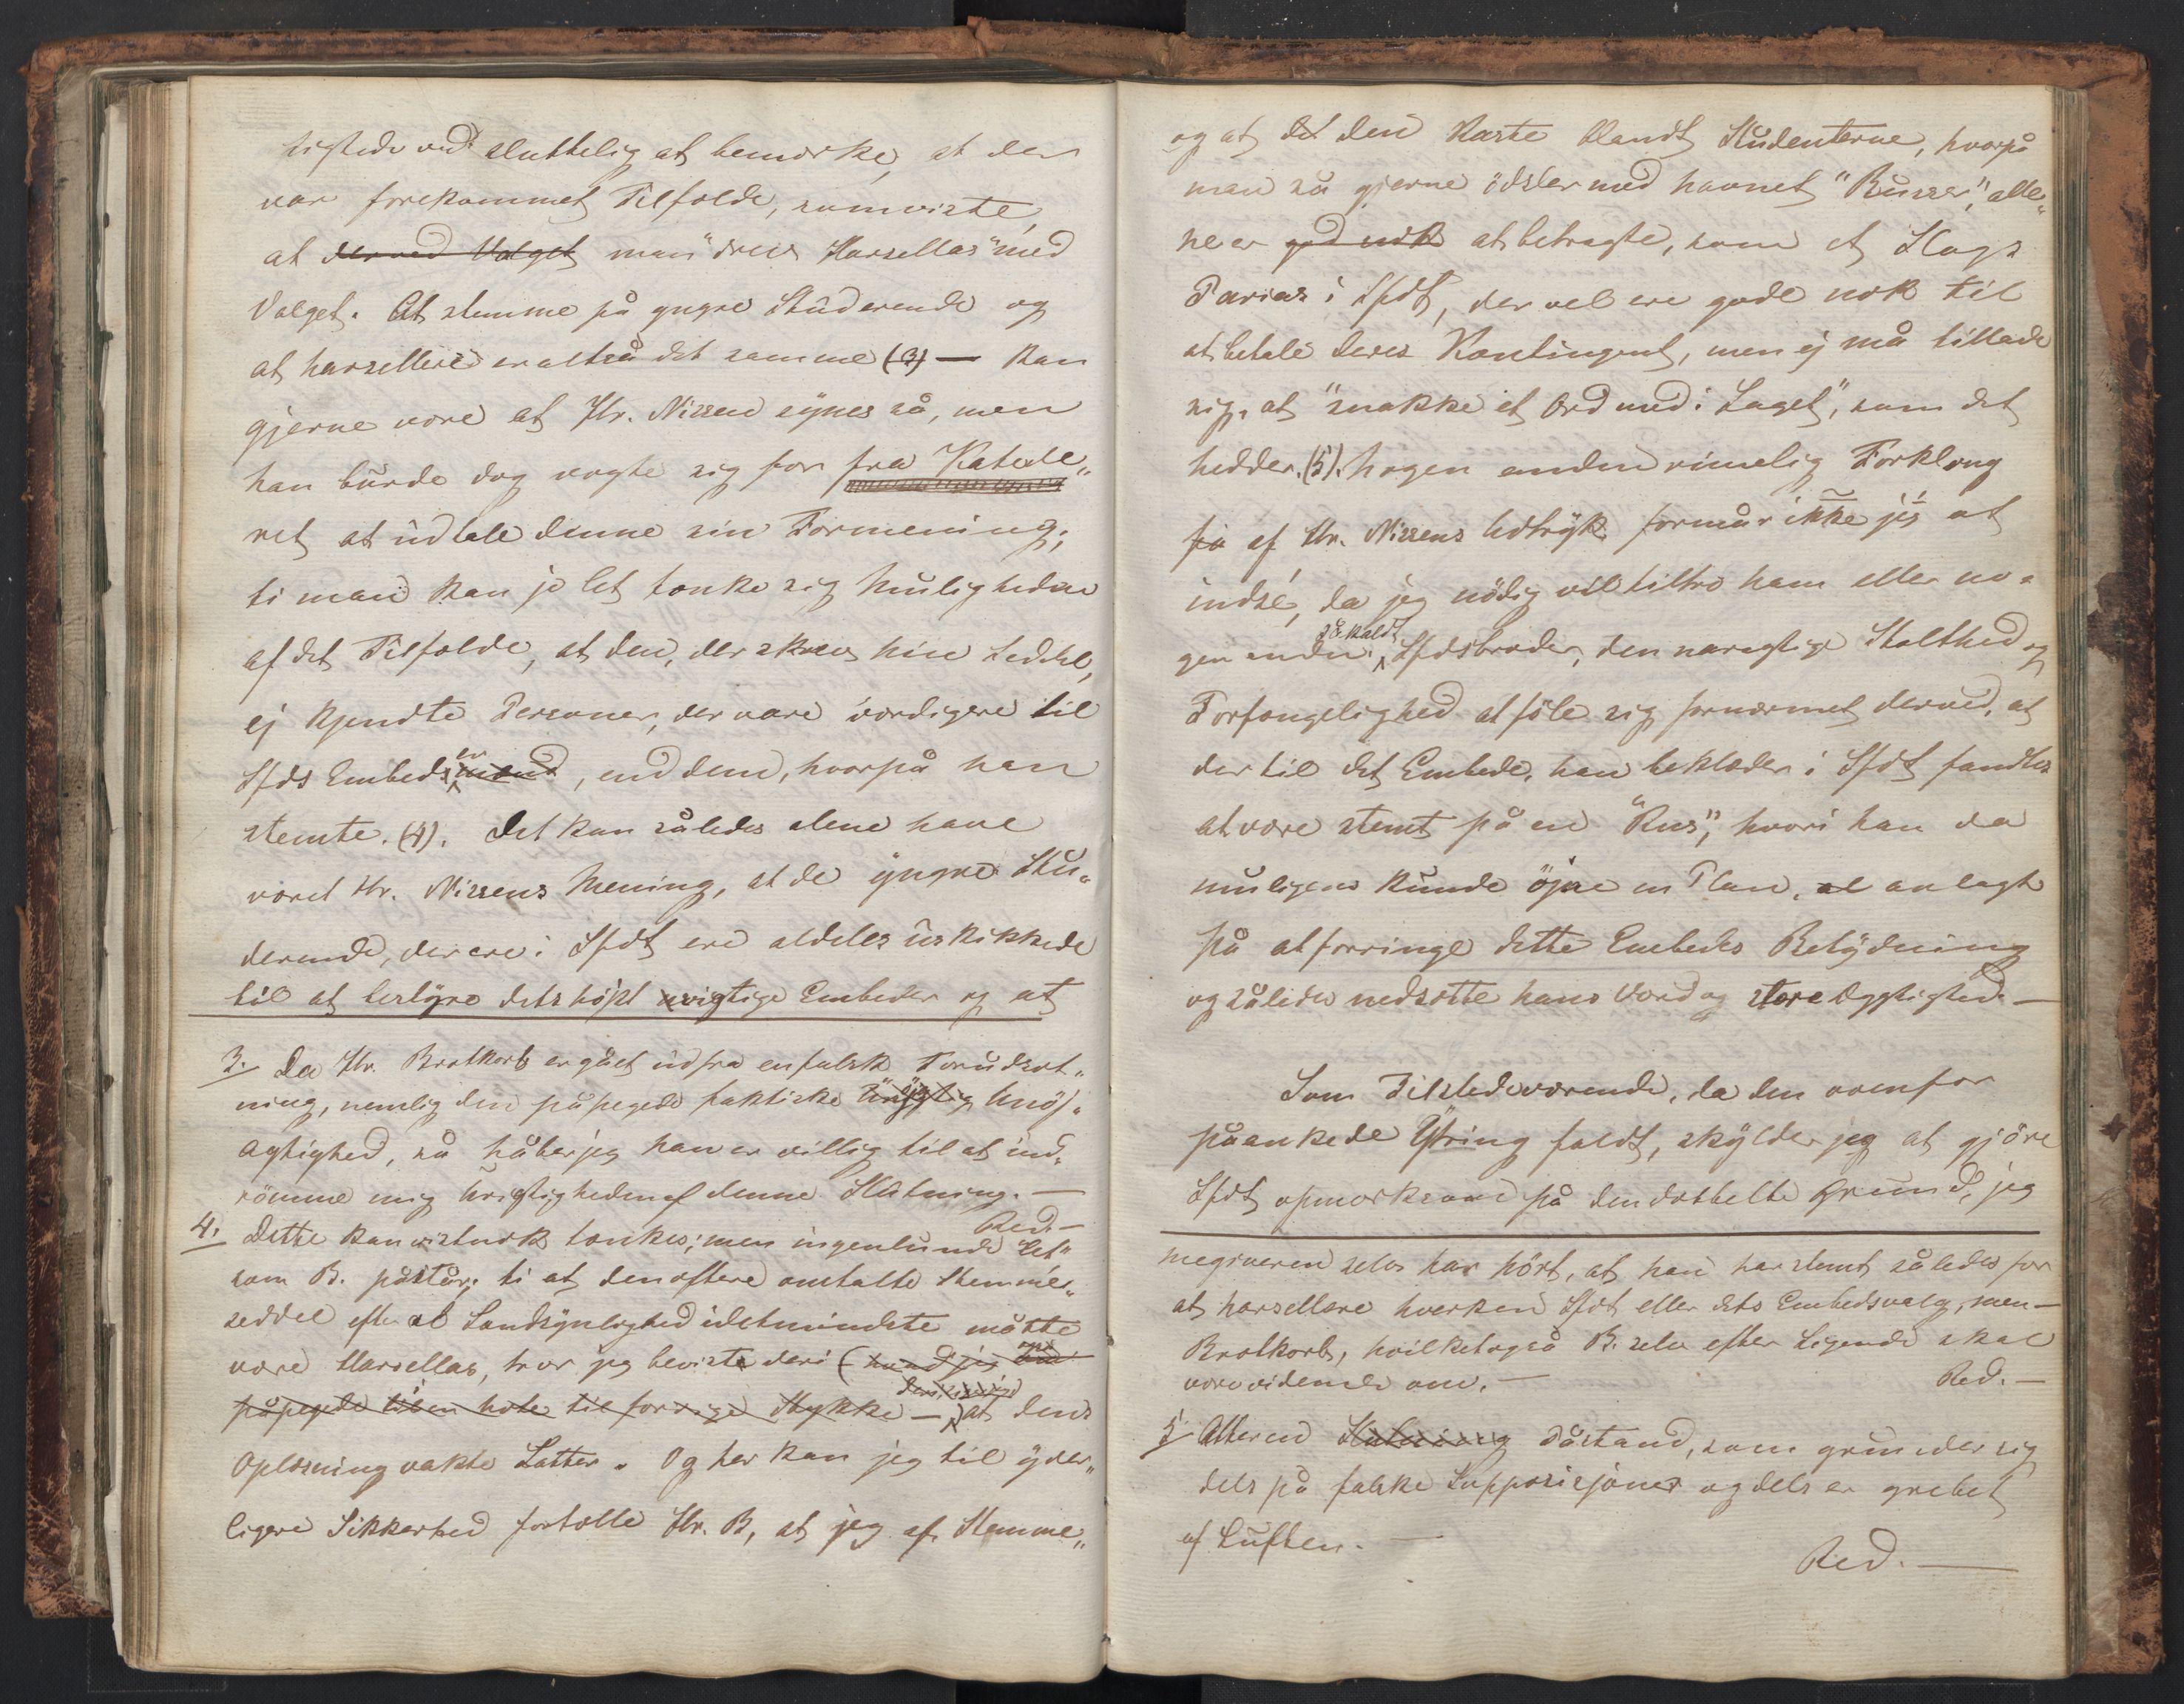 tigede ved sluttelig at bemærke, at der
var forekommet Tilfælde, som viste,
at derved Valget man "drev Harsellas" med
Valget. At stemme på yngre Studerende og
at harsellere er altså det samme (3) — kan
gjerne være at Hr. Nissen synes så, men
han burde dog vogte sig for fra Katede„
ret at udtale denne sin Formening;
ti man kan jo let tænke sig Muligheden
af det Tilfælde, at den, der skrev hin Seddel,
ej kjendte Personer, der vare værdigere til
Sfds Embeder, end dem, hvorpå han
stemte. (4). Det kan således alene have
været Hr. Nissens Mening, at de yngre Stu„
derende, der ere i Sfdt ere aldeles uskikkede
til at bestyre dets højst vigtige Embeder og at
3. Da Hr. Brotkorb er gået ud fra en falsk Forudsæt„
ning, nemlig den påpegede faktiske Unöj„
agtighed, så håber jeg han er villig til at ind„
römme mig Urigtigheden af denne Slutning. —
Red. —
4. Dette kan vistnok tænkes; men ingenlunde "let"
som B. påstår; ti at den oftere omtalte Stemme„
seddel efter al Sandsynlighed idetmindste måtte
være Harsellas, tror jeg beviste deri (hvad jeg
påpegede i en Note til forrige Stykke — ) at dens
Oplæsning vakte Latter. Og her kan jeg til yder„
ligere Sikkerhed fortælle Hr. B, at jeg af Stemme„
og at det den Kaste blandt Studenterne, hvorpå
man så gjerne ödsler med havnet "Russer", alle„
ne er god nok at betragte, som et Slags
Parias i Sfdt, der vel ere gode nok til
at betale deres Kontingent, men ej må tillade
sig, at "snakke et Ord med i Laget", som det
hedder. (5). Nogen anden rimelig Forklaring
på af Hr. Nissens Udtryk formår ikke jeg at
indsé, da jeg nödig vil tiltro ham eller no„
gen anden såkaldt Sfdsbroder, den naragtige Stolthed og
Forfængelighed at föle sig fornærmet derved, at
der til det Embede, han beklæder i Sfdt fandtes
at være stemt på en "Rus", hvori han da
muligens kunde öjne en Plan, al anlagt
på at forringe dette Embedes Betydning
og således nedsætte hans Værd og store Dygtighed. —
Som Tilstedeværende, da den ovenfor
påankede Ytring faldt, skylder jeg at gjöre
Sfdt opmærksom på den dobbelte Grund, jeg
megiveren selv har hört, at han har stemt således for
at harsellere hverken Sfdt eller dets Embedsvalg, men —
Brotkorb, hvilket også B. selv efter Sigende skal
være vidende om. —
Red. —
5. Atter en Slutning Påstand, som grunder sig
dels på falske Supposisjoner og dels er grebet
af Luften. —
Red. —